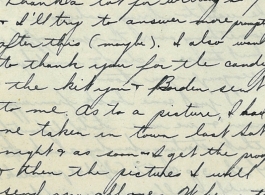 thanks a lot for writing &
& I'll try to answer more prompt
after this (maybe). I also want
to thank you for the cand
& the kit you & Borden sent
to me. As to a picture, I had
one taken in town last Sat
night & as soon as I get the proo
& then the pictures I will
send